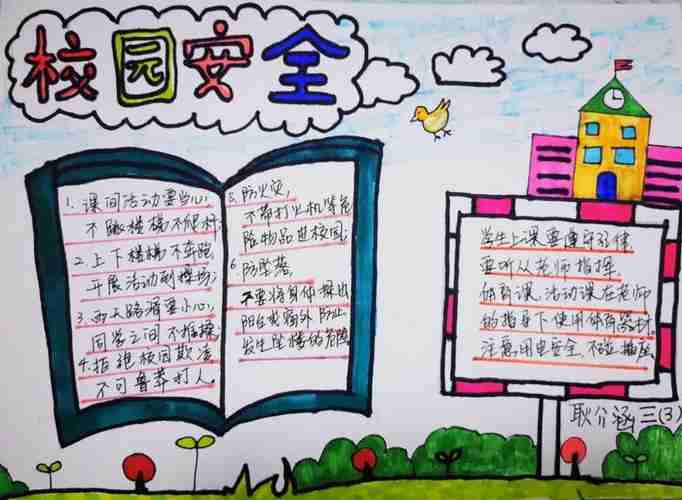 校园安全
1. 课间活动要当心,
不踩楼梯不爬杆;
2. 上下楼梯不奔跑,
开展活动到操场;
3. 雨天路滑要小心,
同学之间不推搡;
4. 拒绝校园欺凌
不可鲁莽打人。
5. 防火灾,
不带打火机等危
险物品进校园;
6. 防坠落,
不要将身体探出
阳台或窗外防止
发生坠楼的危险
学生上课要遵守纪律,
要听从老师指挥,
体育课、活动课在老师
的指导下使用体育器材,
注意用电安全,不碰插座
耿介涵 三(3)